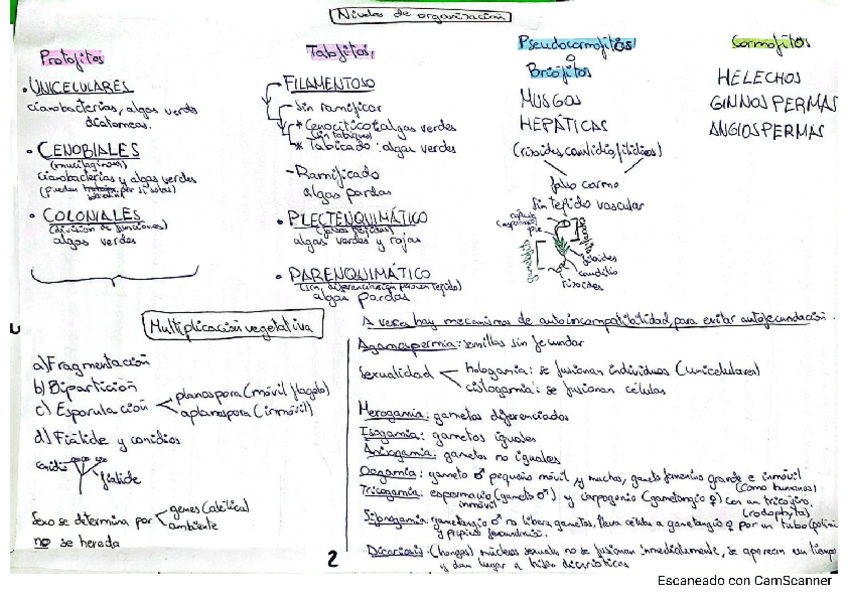 Niveles de organización
Protofitos
• UNICELULARES
cianobacterias, algas verdes
diatomeas.
• CENOBIALES
(mucilaginosa)
cianobacterias y algas verdes
(pueden por si solas)
• COLONIALES
(división de funciones)
algas verdes
Talofitos
• FILAMENTOSO
- Sin ramificar
* Cenocítico: algas verdes
(sin tabiques)
* Tabicado: algas verdes
- Ramificado
algas pardas
• PLECTENQUIMÁTICO
(falsos tejidos)
algas verdes y rojas
• PARENQUIMÁTICO
algas pardas
Pseudocormofitos
o
Briófitos
MUSGOS
HEPÁTICAS
(rizoides, caulidio, filidios)
falso cormo
Sin tejido vascular
pie
filoides
caulidio
rizoides
Cormofitos
HELECHOS
GINNOSPERMAS
ANGIOSPERMAS
Multiplicación vegetativa
a) Fragmentación
b) Bipartición
c) Esporulación
planospora (móvil flagelo)
aplanospora (inmóvil)
d) Fiálide y conidios
conidio
fiálide
Sexo se determina por
genes (alélica)
ambiente
no se hereda
A veces hay mecanismos de autoincompatibilidad, para evitar autofecundación.
Agamospermia: semillas sin fecundar
Sexualidad
hologamia: se fusionan individuos (unicelulares)
cistogamia: se fusionan células
Merogamia: gametos diferenciados
Isogamia: gametos iguales
Anisogamia: gametos no iguales
Oogamia: gameto ♂ pequeño móvil y muchos, gameto femenino grande e inmóvil
(como humanos)
Tricogamia: espermacio (gameto ♂) y carpogonio (gametangio ♀) con un tricógino
inmóvil
(rodophyta)
Sifonogamia: gametangio ♂ no libera gametos, lleva células a gametangio ♀ por un tubo
Dicariosis: (hongos) núcleos sexuales no se fusionan inmediatamente, se aparean un tiempo
y dan lugar a hifas dicarióticas
2
Escaneado con CamScanner